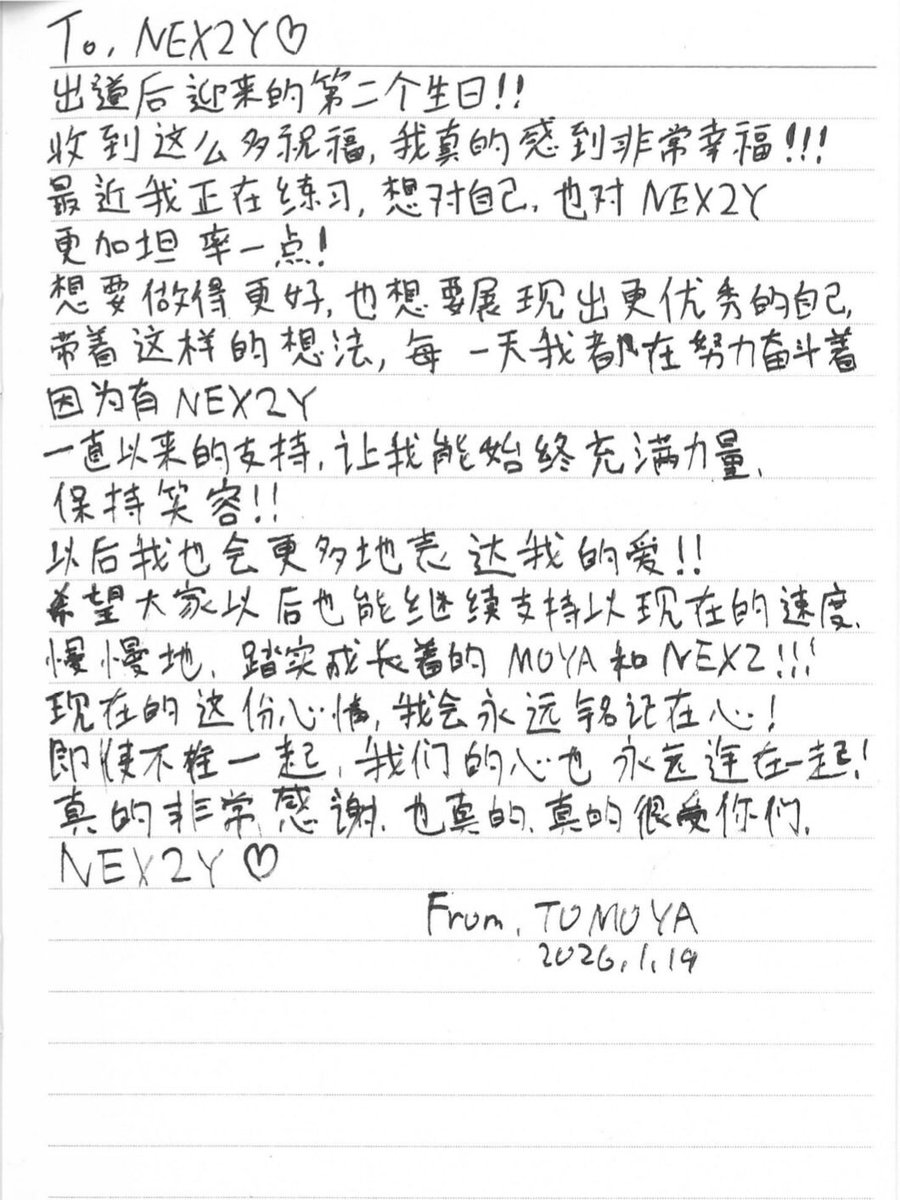 To, NEX2Y♡
出道后迎来的第二个生日!!
收到这么多祝福,我真的感到非常幸福!!!
最近我正在练习,想对自己,也对NEX2Y
更加坦率一点!
想要做得更好,也想要展现出更优秀的自己,
带着这样的想法,每一天我都在努力奋斗着
因为有NEX2Y
一直以来的支持,让我能始终充满力量,
保持笑容!!
以后我也会更多地表达我的爱!!
希望大家以后也能继续支持以现在的速度,
慢慢地,踏实成长着的MOYA和NEXZ!!!
现在的这份心情,我会永远铭记在心!
即使不在一起,我们的心也永远连在一起!
真的非常感谢,也真的,真的很爱你们,
NEX2Y♡
From, TOMOYA
2026.1.19